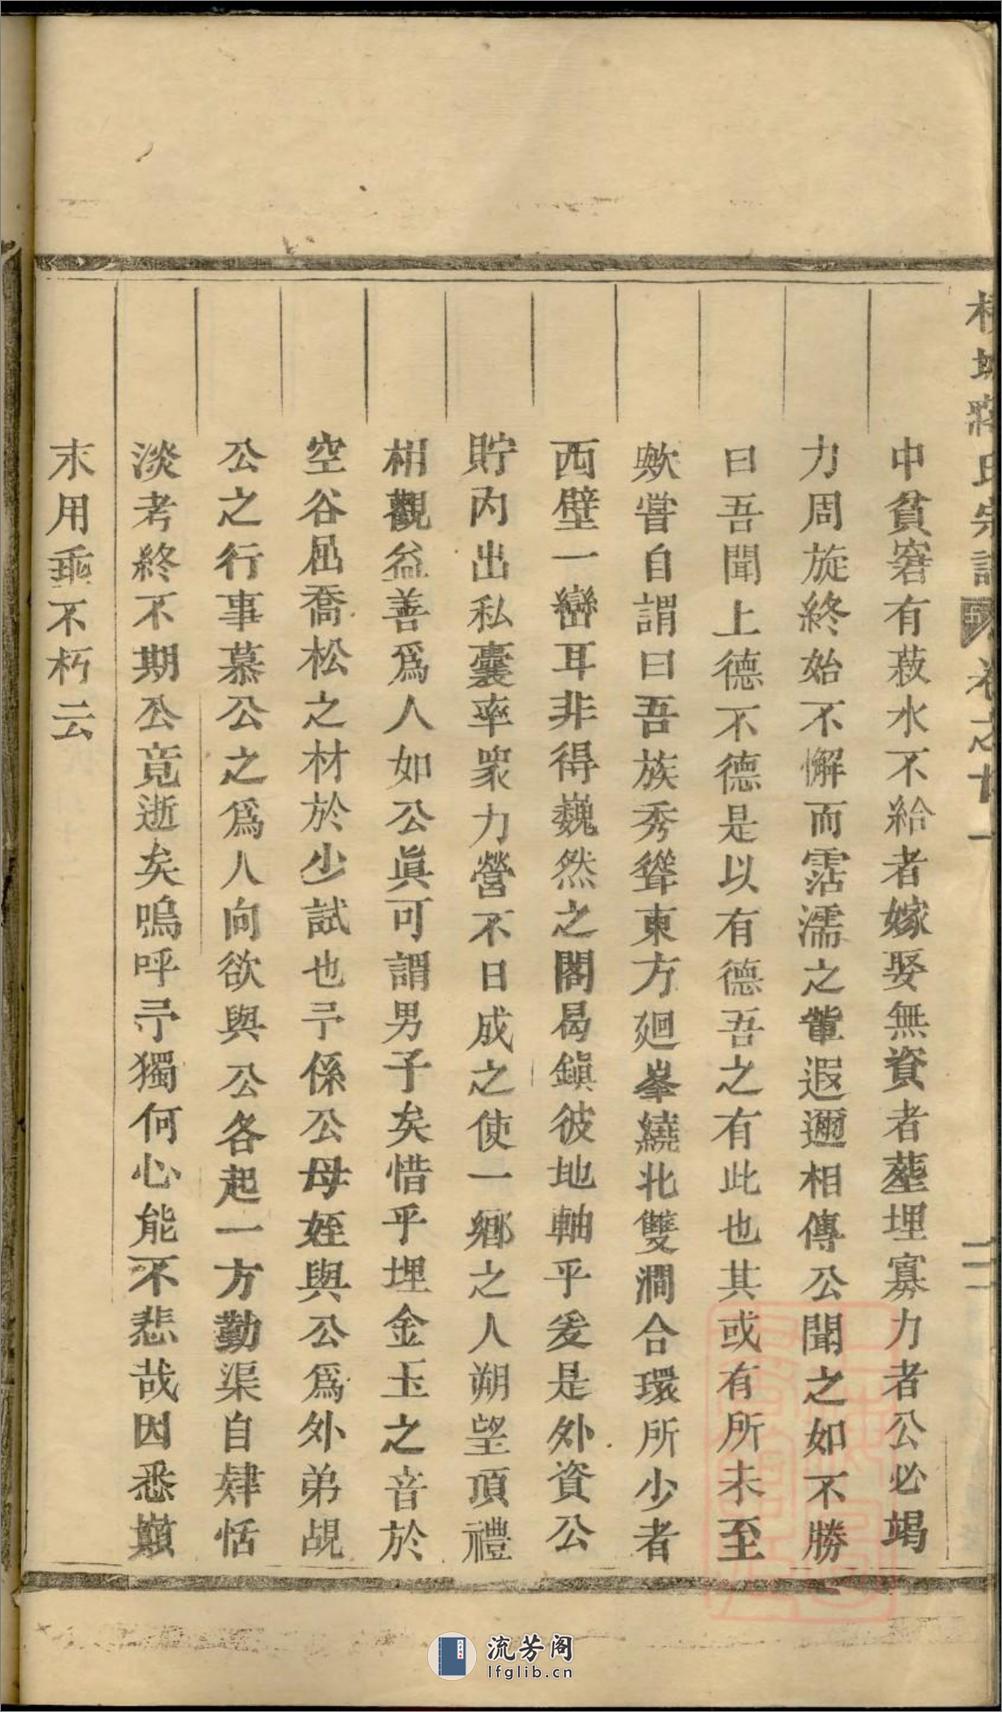 中貧窘有菽水不給者嫁娶無資者塟埋寡力者公必竭
力周旋終始不懈而霑濡之輩遐邇相傳公聞之如不勝
曰吾聞上德不德是以有德吾之有此也其或有所未至
歟嘗自謂曰吾族秀聳東方廻峯繞北雙澗合環所少者
西壁一巒耳非得巍然之閣曷鎮彼地軸乎爰是外資公
貯內出私囊率衆力營不日成之使一鄉之人朔望頂禮
相觀益善爲人如公眞可謂男子矣惜乎埋金玉之音於
空谷屈喬松之材於少試也予係公母姪與公爲外弟覘
公之行事慕公之爲人向欲與公各起一方勤渠自肄恬
淡考終不期公竟逝矣嗚呼予獨何心能不悲哉因悉巔
末用垂不朽云
蔣氏宗譜 卷之 一
二
流芳阁
lfglib.cn